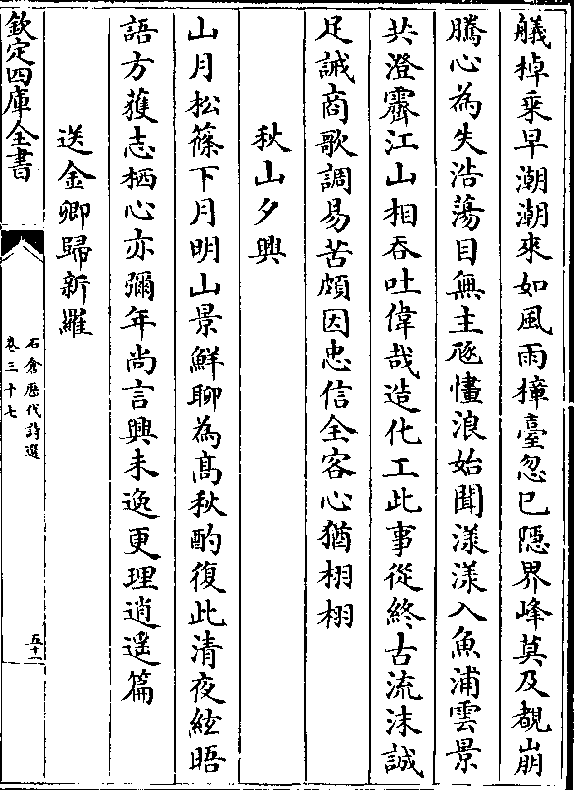 艤棹乗早潮潮來如風雨獐臺忽已隠界峰莫及覩崩
騰心為失浩蕩目無主豗㦎浪始聞漾漾入魚浦雲景
共澄霽江山相吞吐偉哉造化工此事從終古流沫誠
足誡商歌調易苦頗因忠信全客心猶栩栩
秋山夕興
山月松篠下月明山景鮮聊為髙秋酌復此清夜絃晤
語方獲志栖心亦彌年尚言興未逸更理逍遥篇
送金卿歸新羅
欽定四庫全書
石倉歴代詩選
卷三十七
五十一